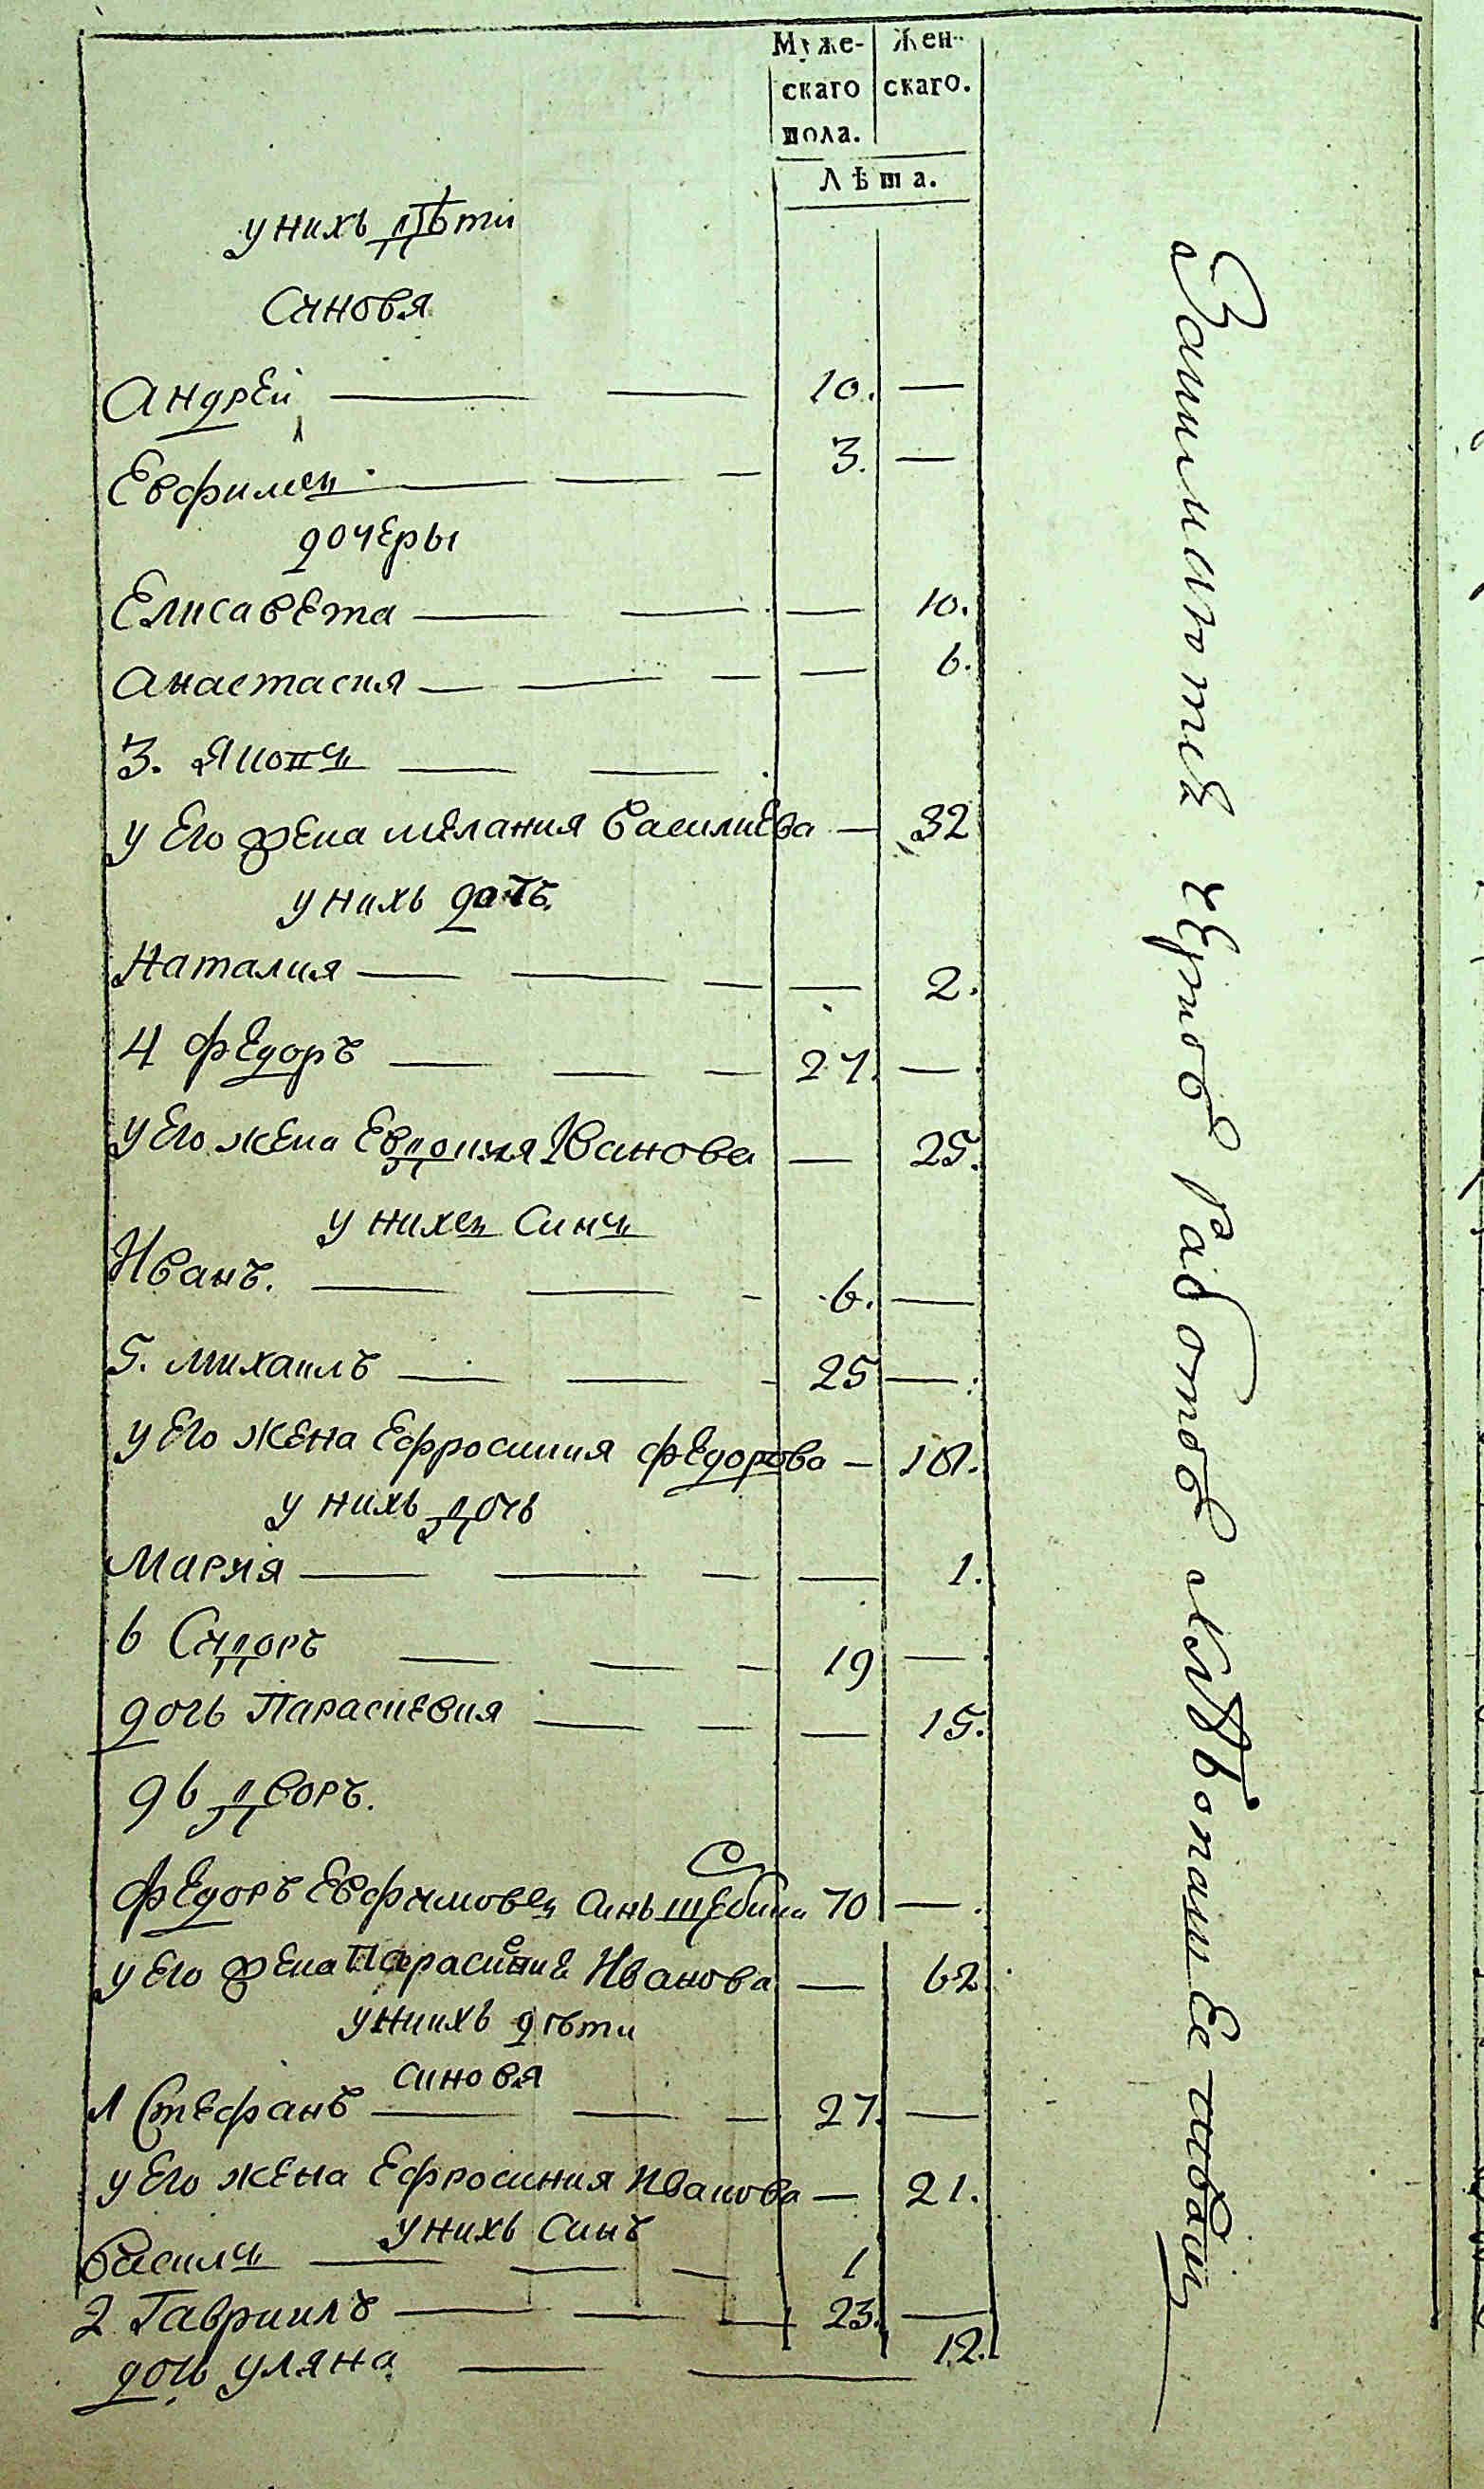 Муже-
скаго
пола.
Жен-
скаго.
Лѣта.
у нихъ дѣти
Синовя
Андрей 10. —
Евфимей 3. —
дочеры
Елисавета — 10.
Анастасия — 6.
3. Яковъ
у Его жена мелания Василиева — 32
у нихъ дочь
Наталия — 2.
4 Федоръ 27. —
у Его жена Евдокия Иванова — 25.
у нихъ синъ
Иванъ. 6. —
5. Михаилъ 25 —
у Его жена Ефросиния Федорова — 18.
у нихъ дочь
Мария — 1.
6 Сидоръ 19 —
дочь Параскевия — 15.
96 дворъ.
Федоръ Евфимовъ синъ 70 —
у Его жена Иванова — 62
у нихъ дѣти
синовя
1 Стефанъ 27. —
у Его жена Ефросиния Иванова — 21.
у нихъ синъ
Василъ 1
2 Гавриилъ 23. —
дочь уляна 12.
Занимаются работою